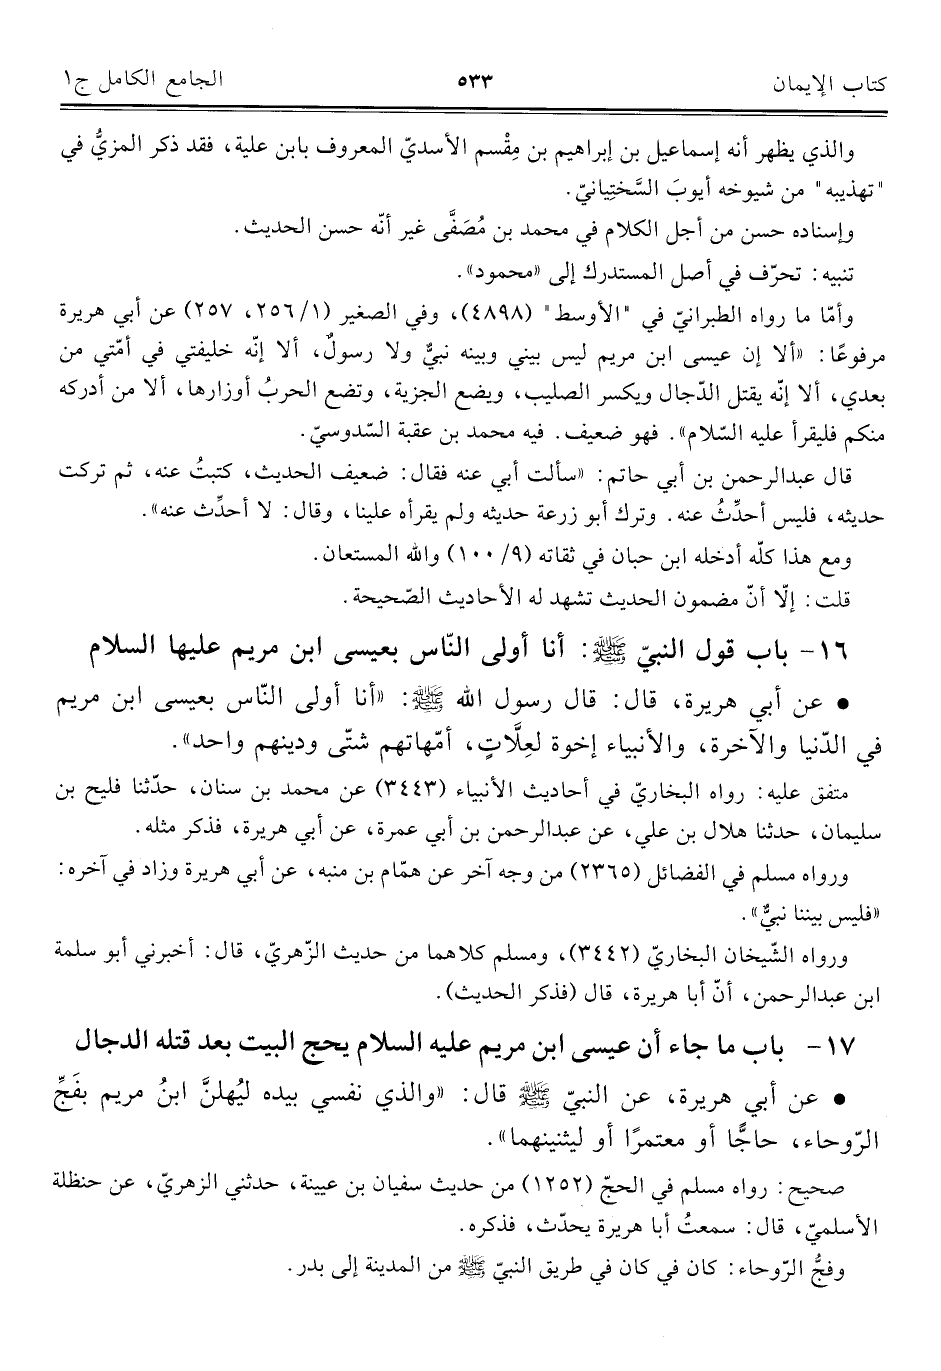 كتاب الإيمان ٥٣٣ الجامع الكامل ج١
والذي يظهر أنه إسماعيل بن إبراهيم بن مِقْسم الأسديّ المعروف بابن علية، فقد ذكر المزيُّ في
"تهذيبه" من شيوخه أيوبَ السَّختِيانيّ.
وإسناده حسن من أجل الكلام في محمد بن مُصَفَّى غير أنّه حسن الحديث.
تنبيه: تحرّف في أصل المستدرك إلى «محمود».
وأمّا ما رواه الطبرانيّ في "الأوسط" (٤٨٩٨)، وفي الصغير (١/ ٢٥٦، ٢٥٧) عن أبي هريرة
مرفوعًا: «ألا إن عيسى ابن مريم ليس بيني وبينه نبيٌّ ولا رسولٌ، ألا إنّه خليفتي في أمّتي من
بعدي، ألا إنّه يقتل الدّجال ويكسر الصليب، ويضع الجزية، وتضع الحربُ أوزارها، ألا من أدركه
منكم فليقرأ عليه السّلام». فهو ضعيف. فيه محمد بن عقبة السّدوسيّ.
قال عبدالرحمن بن أبي حاتم: «سألت أبي عنه فقال: ضعيف الحديث، كتبتُ عنه، ثم تركت
حديثه، فليس أحدِّثُ عنه. وترك أبو زرعة حديثه ولم يقرأه علينا، وقال: لا أحدِّث عنه».
ومع هذا كلّه أدخله ابن حبان في ثقاته (٩/ ١٠٠) والله المستعان.
قلت: إلّا أنّ مضمون الحديث تشهد له الأحاديث الصّحيحة.
١٦- باب قول النبيّ ﷺ: أنا أولى النّاس بعيسى ابن مريم عليها السلام
• عن أبي هريرة، قال: قال رسول الله ﷺ: «أنا أولى النّاس بعيسى ابن مريم
في الدّنيا والآخرة، والأنبياء إخوة لعِلَّاتٍ، أمّهاتهم شتّى ودينهم واحد».
متفق عليه: رواه البخاريّ في أحاديث الأنبياء (٣٤٤٣) عن محمد بن سنان، حدّثنا فليح بن
سليمان، حدثنا هلال بن علي، عن عبدالرحمن بن أبي عمرة، عن أبي هريرة، فذكر مثله.
ورواه مسلم في الفضائل (٢٣٦٥) من وجه آخر عن همّام بن منبه، عن أبي هريرة وزاد في آخره:
«فليس بيننا نبيٌّ».
ورواه الشّيخان البخاريّ (٣٤٤٢)، ومسلم كلاهما من حديث الزّهريّ، قال: أخبرني أبو سلمة
ابن عبدالرحمن، أنّ أبا هريرة، قال (فذكر الحديث).
١٧- باب ما جاء أن عيسى ابن مريم عليه السلام يحج البيت بعد قتله الدجال
• عن أبي هريرة، عن النبيّ ﷺ قال: «والذي نفسي بيده ليُهلنَّ ابنُ مريم بفَجِّ
الرّوحاء، حاجًّا أو معتمرًا أو ليثنينهما».
صحيح: رواه مسلم في الحجّ (١٢٥٢) من حديث سفيان بن عيينة، حدثني الزهريّ، عن حنظلة
الأسلميّ، قال: سمعتُ أبا هريرة يحدّث، فذكره.
وفجُّ الرّوحاء: كان في كان في طريق النبيّ ﷺ من المدينة إلى بدر.